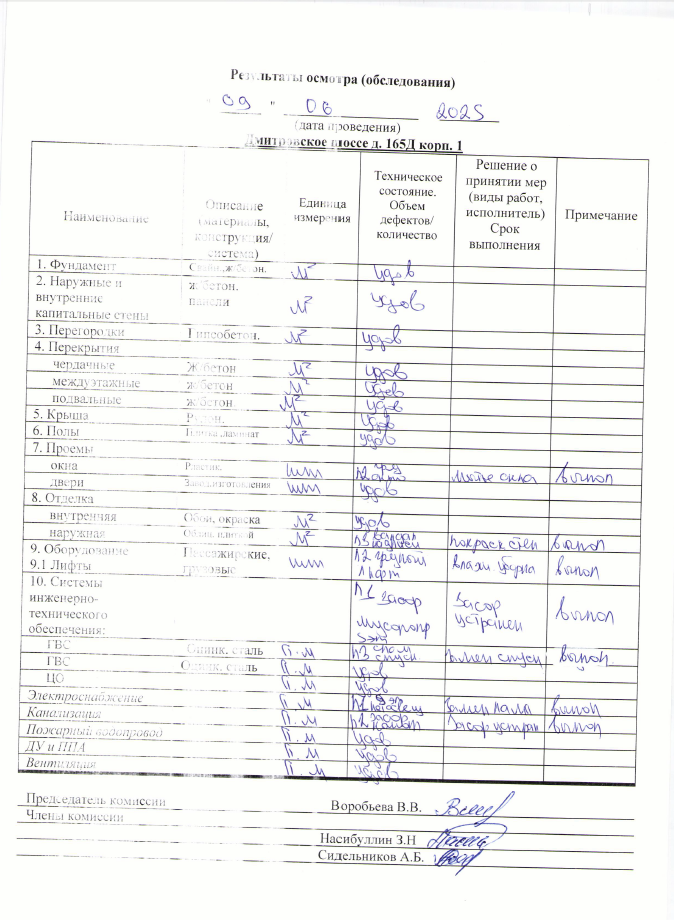 Результаты осмотра (обследования)
" 09 " 06 2025
(дата проведения)
Дмитровское шоссе д. 165Д корп. 1
Наименование
Описание
(материалы,
конструкция/
система)
Единица
измерения
Техническое
состояние.
Объем
дефектов/
количество
Решение о
принятии мер
(виды работ,
исполнитель)
Срок
выполнения
Примечание
1. Фундамент Сваи, ж/бетон. м² удов
2. Наружные и
внутренние
капитальные стены
ж/бетон.
панели
м² удов
3. Перегородки Гипсобетон. м² удов
4. Перекрытия
чердачные Ж/бетон м² удов
междуэтажные ж/бетон м² удов
подвальные ж/бетон м² удов
5. Крыша Рулон. м² удов
6. Полы Плитка ламинат м² удов
7. Проемы
окна Пластик. шт мытье окна выпол
двери Завод.изготовления шт удов
8. Отделка
внутренняя Обои, окраска м² удов
наружная м² п3 покраск стен выпол
9. Оборудование
9.1 Лифты
Пассажирские,
грузовые
шт п2 грязный
лифт
влажн уборка выпол
10. Системы
инженерно-
технического
обеспечения:
п1 засор
мусоропр
5эт
Засор
устранен
выпол
ГВС Оцинк. сталь п.м п2 замен выпол
ГВС Оцинк. сталь п.м удов
ЦО п.м удов
Электроснабжение п.м замен лампы выпол
Канализация п.м п2 засор Засор устран выпол
Пожарный водопровод п.м удов
ДУ и ППА п.м удов
Вентиляция п.м удов
Председатель комиссии Воробьева В.В.
Члены комиссии
Насибуллин З.Н
Сидельников А.Б.